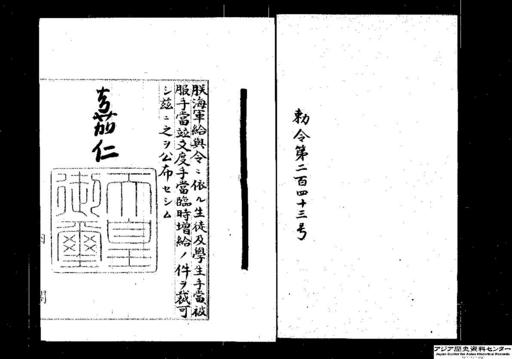 勅令第二百四十三号
朕海軍給與令ニ依ル生徒及學生手當被
服手當竝支度手當臨時増給ノ件ヲ裁可
シ茲ニ之ヲ公布セシム
嘉仁
天皇
御璽
アジア歴史資料センター
Japan Center for Asian Historical Records